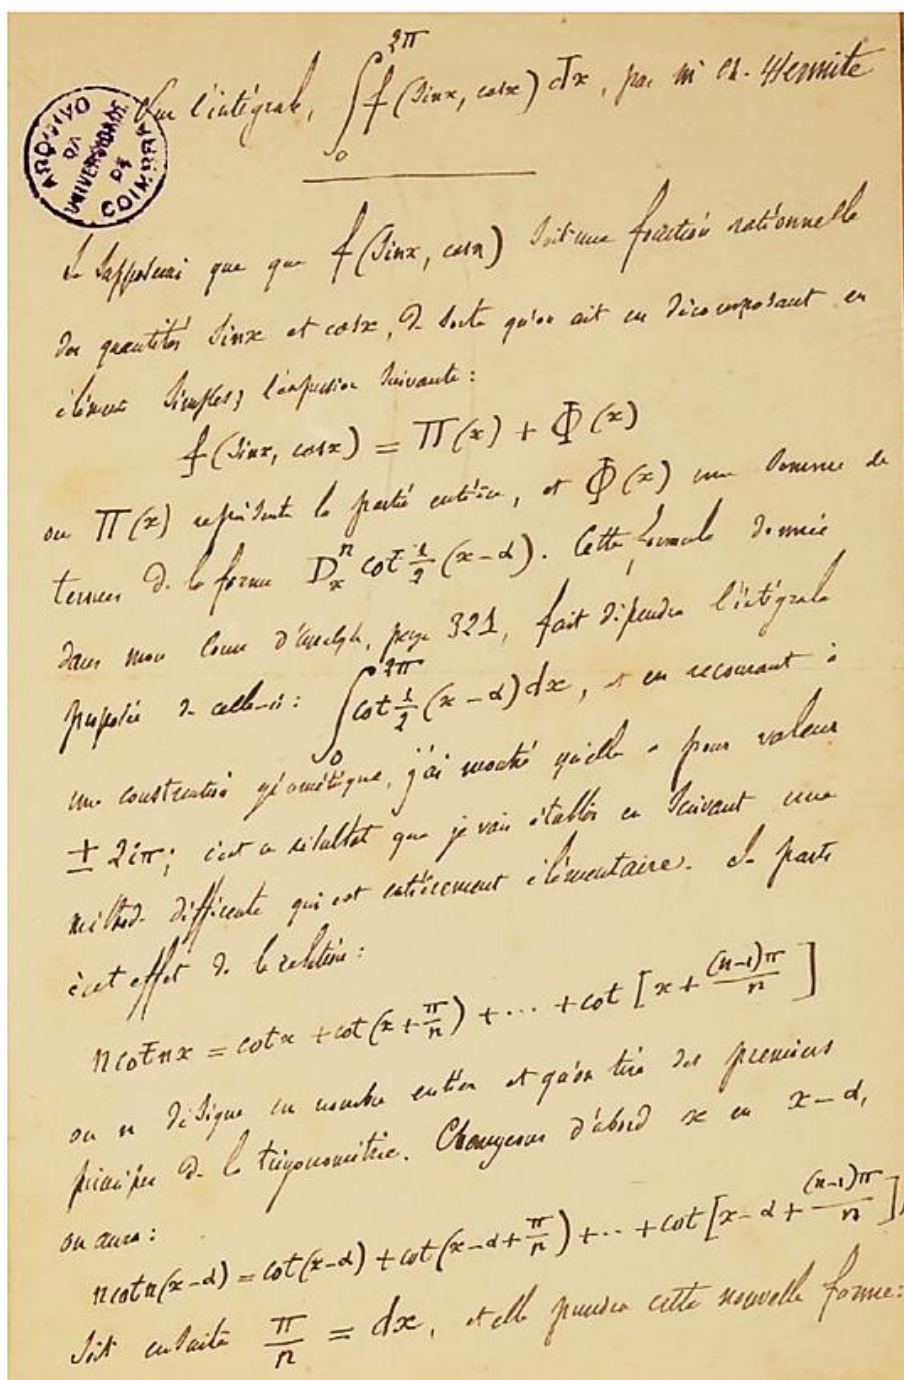 Sur l'intégrale, ∫₀^{2π} f(sinx, cosx) dx, par Mr Ch. Hermite
ARQUIVO DA UNIVERSIDADE DE COIMBRA
Je supposerai que que f(sinx, cosx) soit une fraction rationnelle
des quantités sinx et cosx, de sorte qu'on ait en décomposant en
éléments simples, l'expression suivante:
f(sinx, cosx) = Π(x) + Φ(x)
ou Π(x) représente la partie entière, et Φ(x) une somme de
termes de la forme Dₓⁿ cot ½(x-α). Cette formule donnée
dans mon Cours d'analyse, page 321, fait dépendre l'intégrale
proposée de celle-ci: ∫₀^{2π} cot ½(x-α) dx, et en recourant à
une construction géométrique, j'ai montré qu'elle a pour valeur
± 2iπ; c'est ce résultat que je vais établir en suivant une
méthode différente qui est entièrement élémentaire. Je pars
à cet effet de la relation:
n cot nx = cot x + cot(x + π/n) + ... + cot [x + (n-1)π/n]
ou n désigne un nombre entier et qu'on tire des premiers
principes de la trigonométrie. Changeons d'abord x en x-α,
on aura:
n cot n(x-α) = cot(x-α) + cot(x-α+π/n) + ... + cot [x-α+(n-1)π/n],
Soit ensuite π/n = dx, et elle prendra cette nouvelle forme: